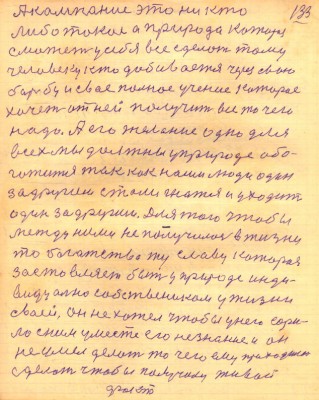 133
А кампание это ни кто
либо такое а природа катора
сможет у себя все сделат тому
человеку кто добиваетя через свою
барбу и свае полное учение каторае
хочет от ней получит все то чего
надо. А его желание одно для
всех мы должны у природе обо
гатитя так как наши люди один
за другим стали гнатся и уходит
один за другим. Для того чтобы
между ними не получилос в жизни
то богатство ту славу каторая
заставляет быт у природе инди
видуално собствеником у жизни
своей, он не хотел чтобы у него
с ним уместе его незнание и он
не умел делат то чего ему
сделат чтобы получит живой